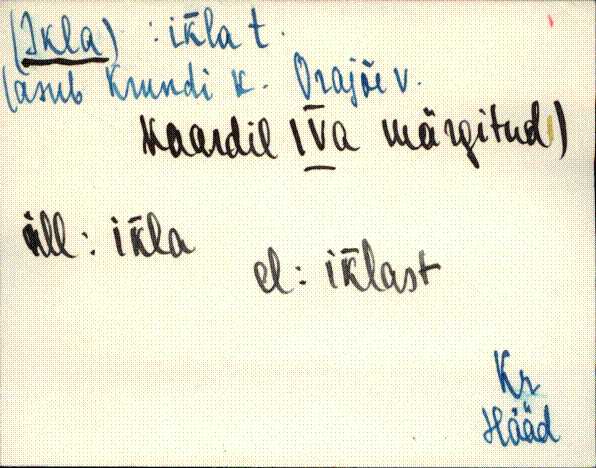 (Ikla) : ik̄la t.
(asub Krundi k. Orajõe v.
kaardil IVa märgitud)
ill: ik̄la
el: ik̄last
Kr
Hääd